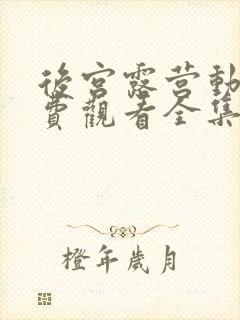 後宮露营動
費觀看全集
橙年歲月